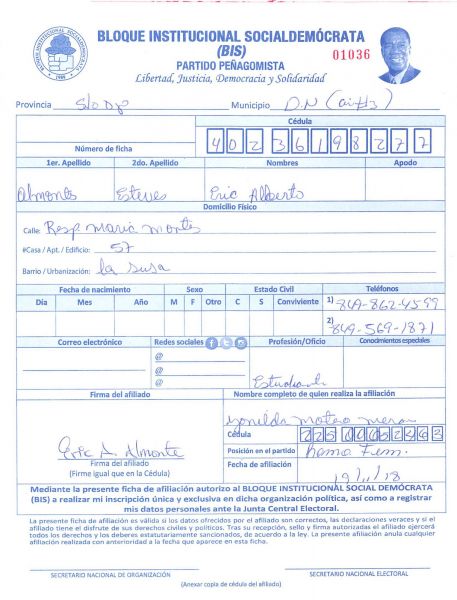 BLOQUE INSTITUCIONAL SOCIALDEMÓCRATA
(BIS)
01036
PARTIDO PEÑAGOMISTA
Libertad, Justicia, Democracia y Solidaridad
Provincia Municipio D.N
Cédula
Número de ficha 402 3619827 7
1er. Apellido 2do. Apellido Nombres Apodo
Almonte Esteves Eric Alberto
Domicilio Físico
Calle: Resp. Maria Montes
#Casa / Apt. / Edificio: 57
Barrio / Urbanización:
Fecha de nacimiento Sexo Estado Civil Teléfonos
Día Mes Año M F Otro C S Conviviente 1) 849-862-4599
2) 849-569-1871
Correo electrónico Redes sociales Profesión/Oficio Conocimientos especiales
@
@
@
Estudiante
Firma del afiliado Nombre completo de quien realiza la afiliación
Eric A. Almonte
Cédula
Firma del afiliado
(Firme igual que en la Cédula)
Posición en el partido Rama Fem.
Fecha de afiliación
Mediante la presente ficha de afiliación autorizo al BLOQUE INSTITUCIONAL SOCIAL DEMÓCRATA
(BIS) a realizar mi inscripción única y exclusiva en dicha organización política, así como a registrar
mis datos personales ante la Junta Central Electoral.
La presente ficha de afiliación es válida si los datos ofrecidos por el afiliado son correctos, las declaraciones veraces y si el
afiliado tiene el disfrute de sus derechos civiles y políticos. Tras su recepción, sello y firma autorizadas el afiliado ejercerá
todos los derechos y los deberes estatutariamente sancionados, de acuerdo a la ley. La presente afiliación anula cualquier
afiliación realizada con anterioridad a la fecha que aparece en esta ficha.
SECRETARIO NACIONAL DE ORGANIZACIÓN SECRETARIO NACIONAL ELECTORAL
(Anexar copia de cédula del afiliado)